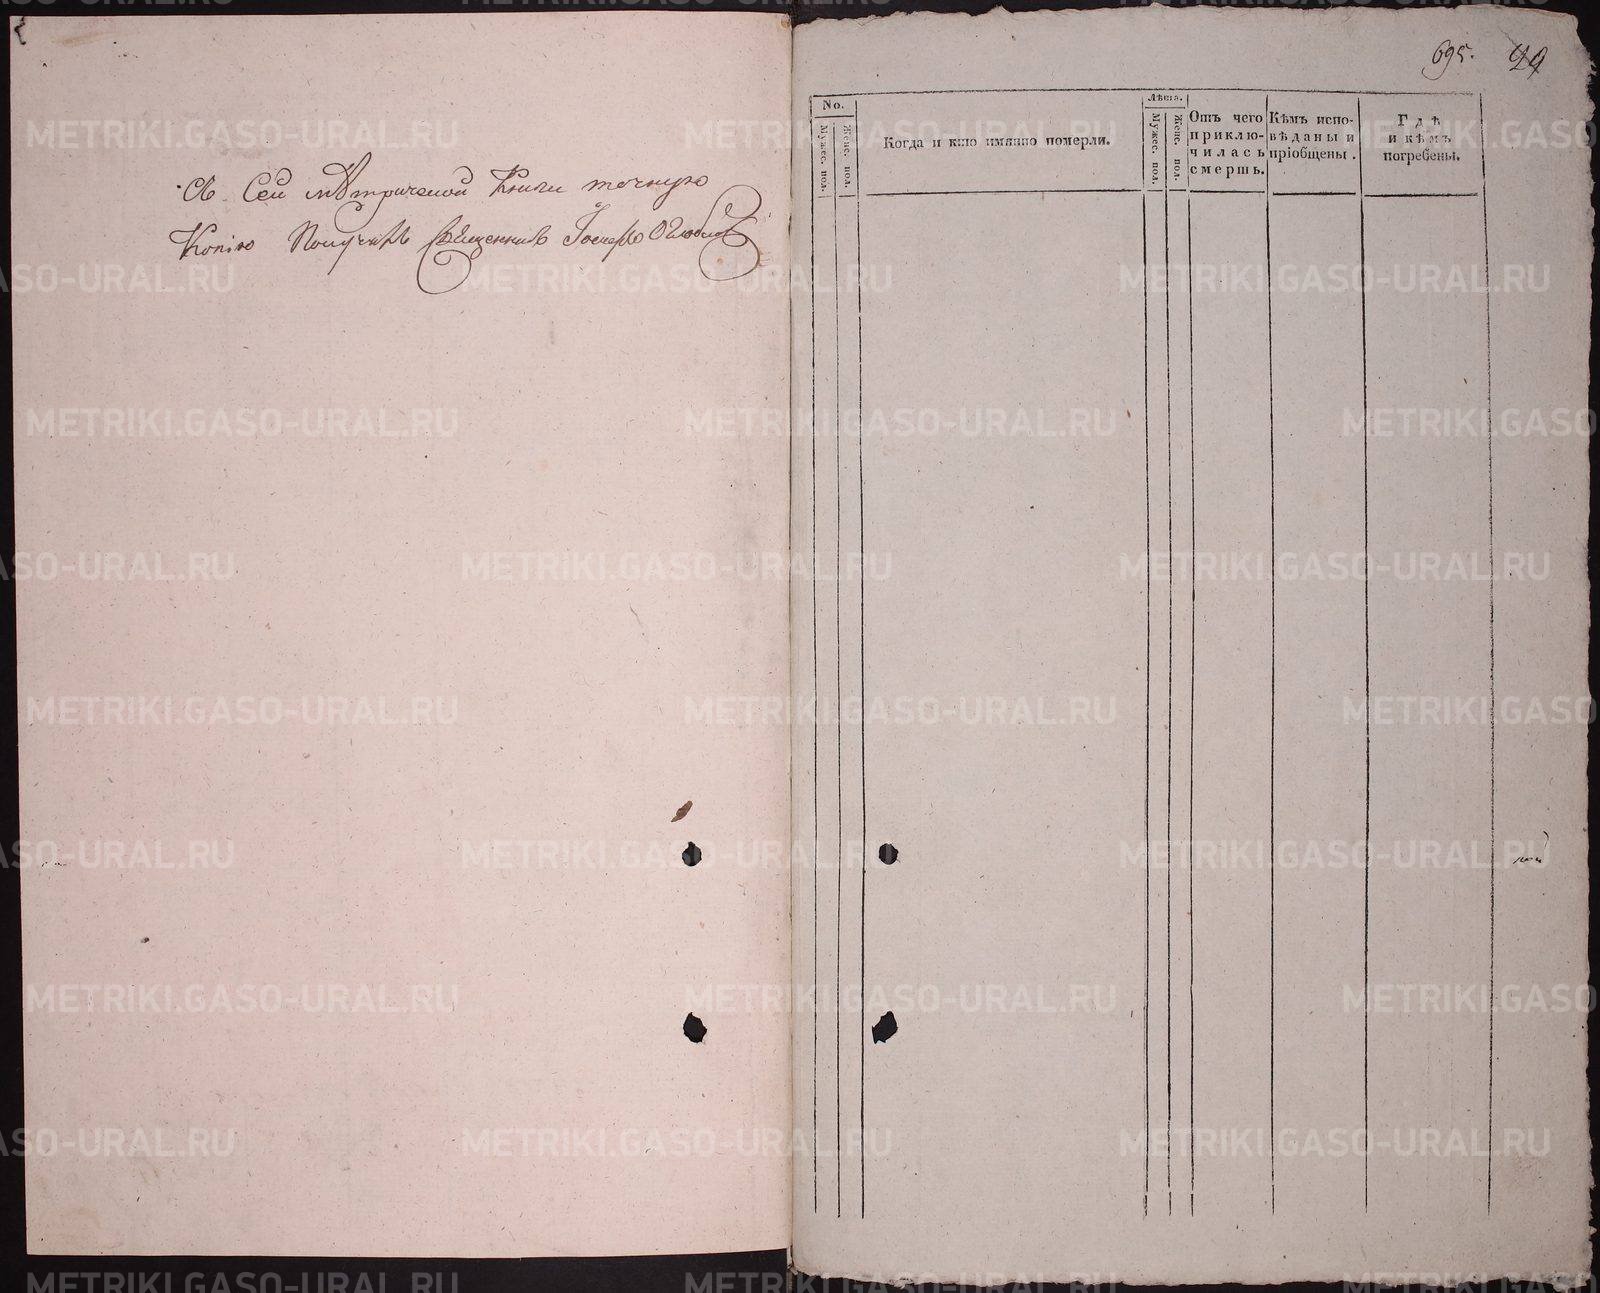 Съ Сей мѣтрической Книги точную
Копію Получилъ Священникъ Іосифъ
695. 29
No.
Мужес. пол.
Женс. пол.
Когда и кто имянно померли.
Лѣта.
Мужес. пол.
Женс. пол.
Отъ чего
приклю-
чилась
смерть.
Кѣмъ испо-
вѣданы и
пріобщены.
Гдѣ
и кѣмъ
погребены.
METRIKI.GASO-URAL.RU